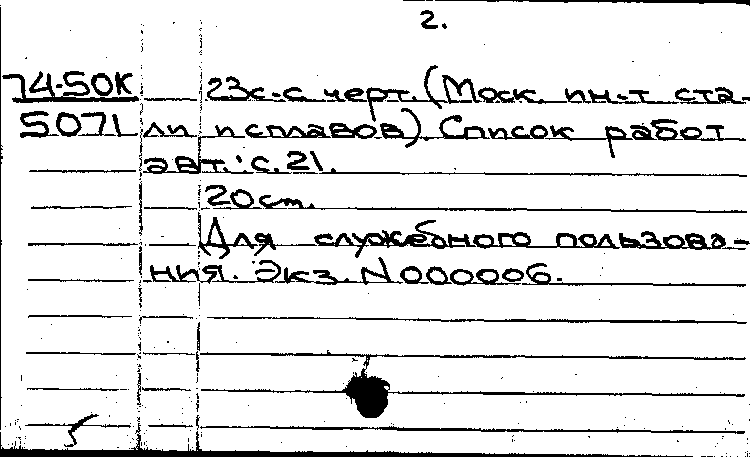 2.
74-50К 23с. с черт. (Моск. ин-т ста-
5071 ли и сплавов). Список работ
авт.: с. 21.
20 см.
Для служебного пользова-
ния. Экз. N 000006.